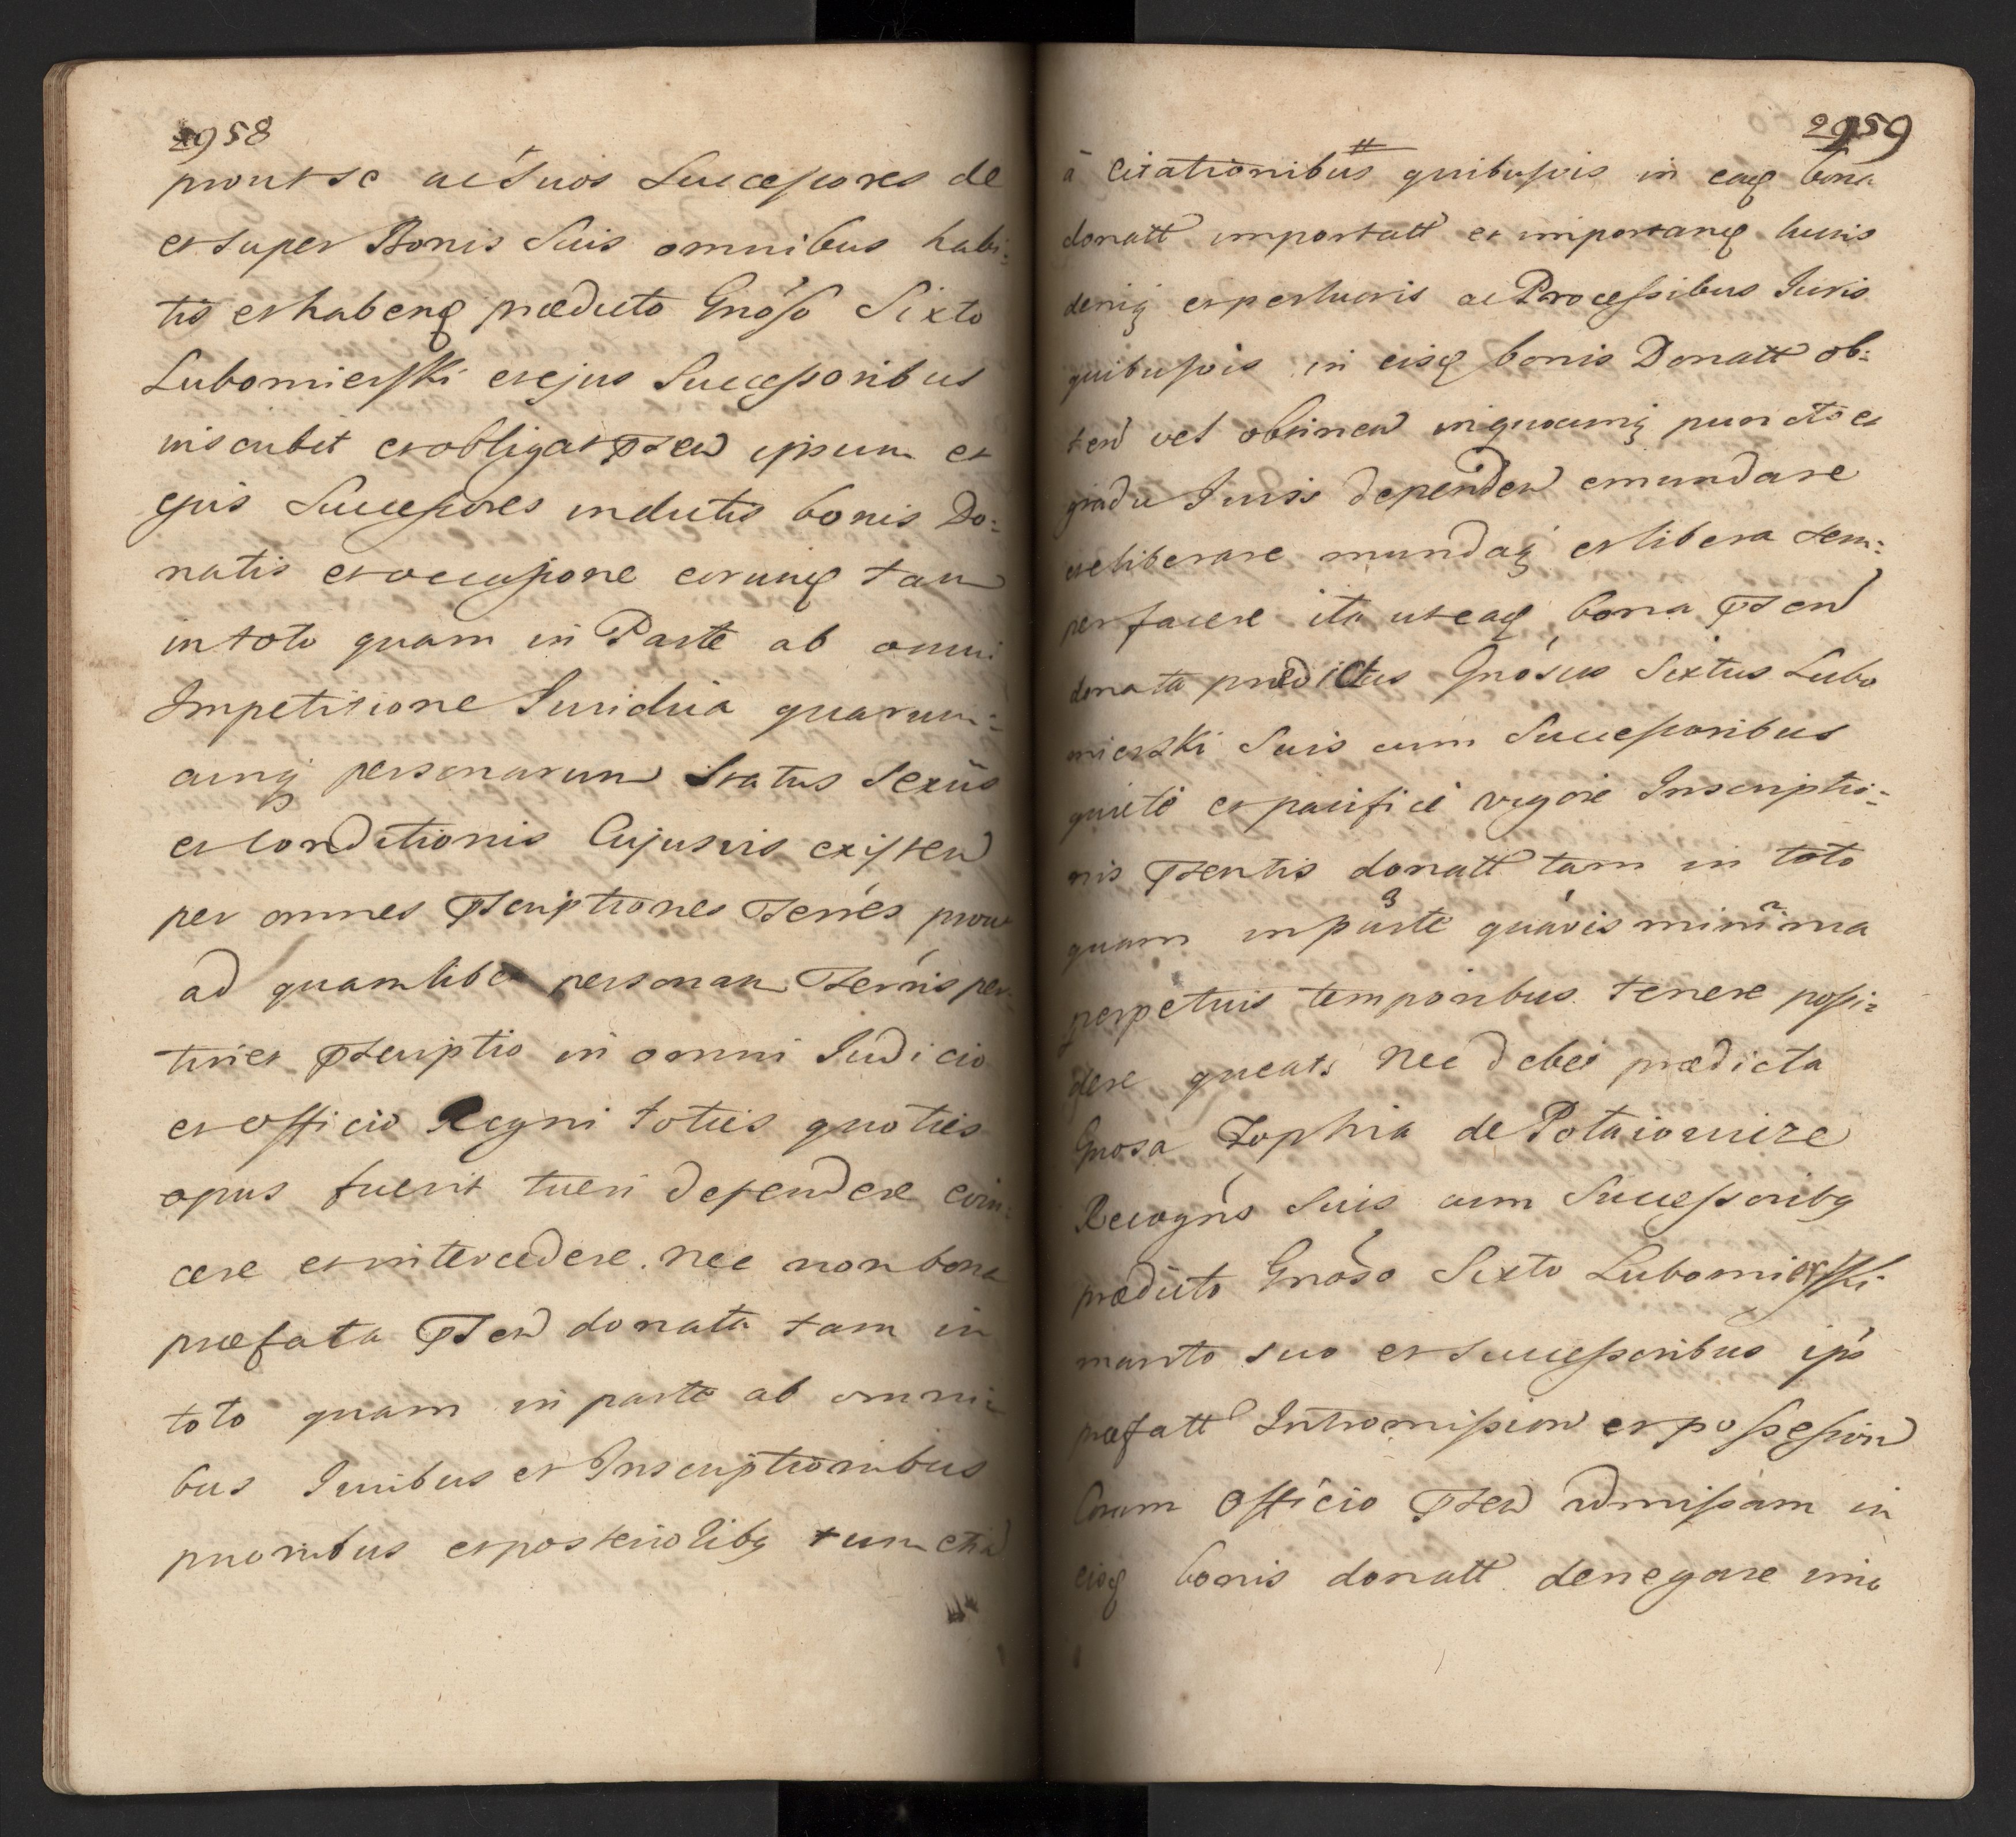 2958
prout se ac Suos Successores de
et super Bonis Suis omnibus habi:
tis et haben̄q prædicto Gnóso Sixto
Lubomierski et ejus Successoribus
inscribit et obligat pṡen ipsum et
ejus Successores in dictis bonis Do:
natis et occupone eorunq tam
in toto quam in Parte ab omni
Impetitione Juridica quarum:
cunq personarum Status Sexûs
et Conditionis Cujusvis existen
per omnes pscriptiones terrés prout
ad quamlibet personam terrís per:
tinet pscriptio in omni Judicio
et officio Regni toties quoties
opus fuerit tueri defendere evin:
cere et intercedere. nec non bona
præfata psen donata tam in
toto quam in parte ab omni:
bus Juribus et Inscriptionibus
prioribus et posterioribq tum et
2959
à Citationibus quibusvis in eaq bona
donatt importatt et importanq huris
deniq et pertuoris ac Processibus Juris
quibusvis in eisq bonis Donatt ob:
ten vel obtinen in quocunq puncto et
gradu Juris dependen emundare
et liberare mundaq et libera sem:
per facere ita ut eaq bona psen
donata prædictus Gnósus Sixtus Lubo
mierski Suis cum Successoribus
quietè et pacificè vigore Inscriptio:
nis psentis donatt tam in toto
quam in parte quàvis minima
perpetuis temporibus tenere possi:
dere queat. Nec debet prædicta
Gnosa Zophia de Potaiowice
Recogńs Suis cum Successoribq
prædicto Gnóso Sixto Lubomierski
marito suo et Successoribus ips
præfatt Intromission et possession
Coram Officio psen admissam in
eisq bonis donatt denegare imo